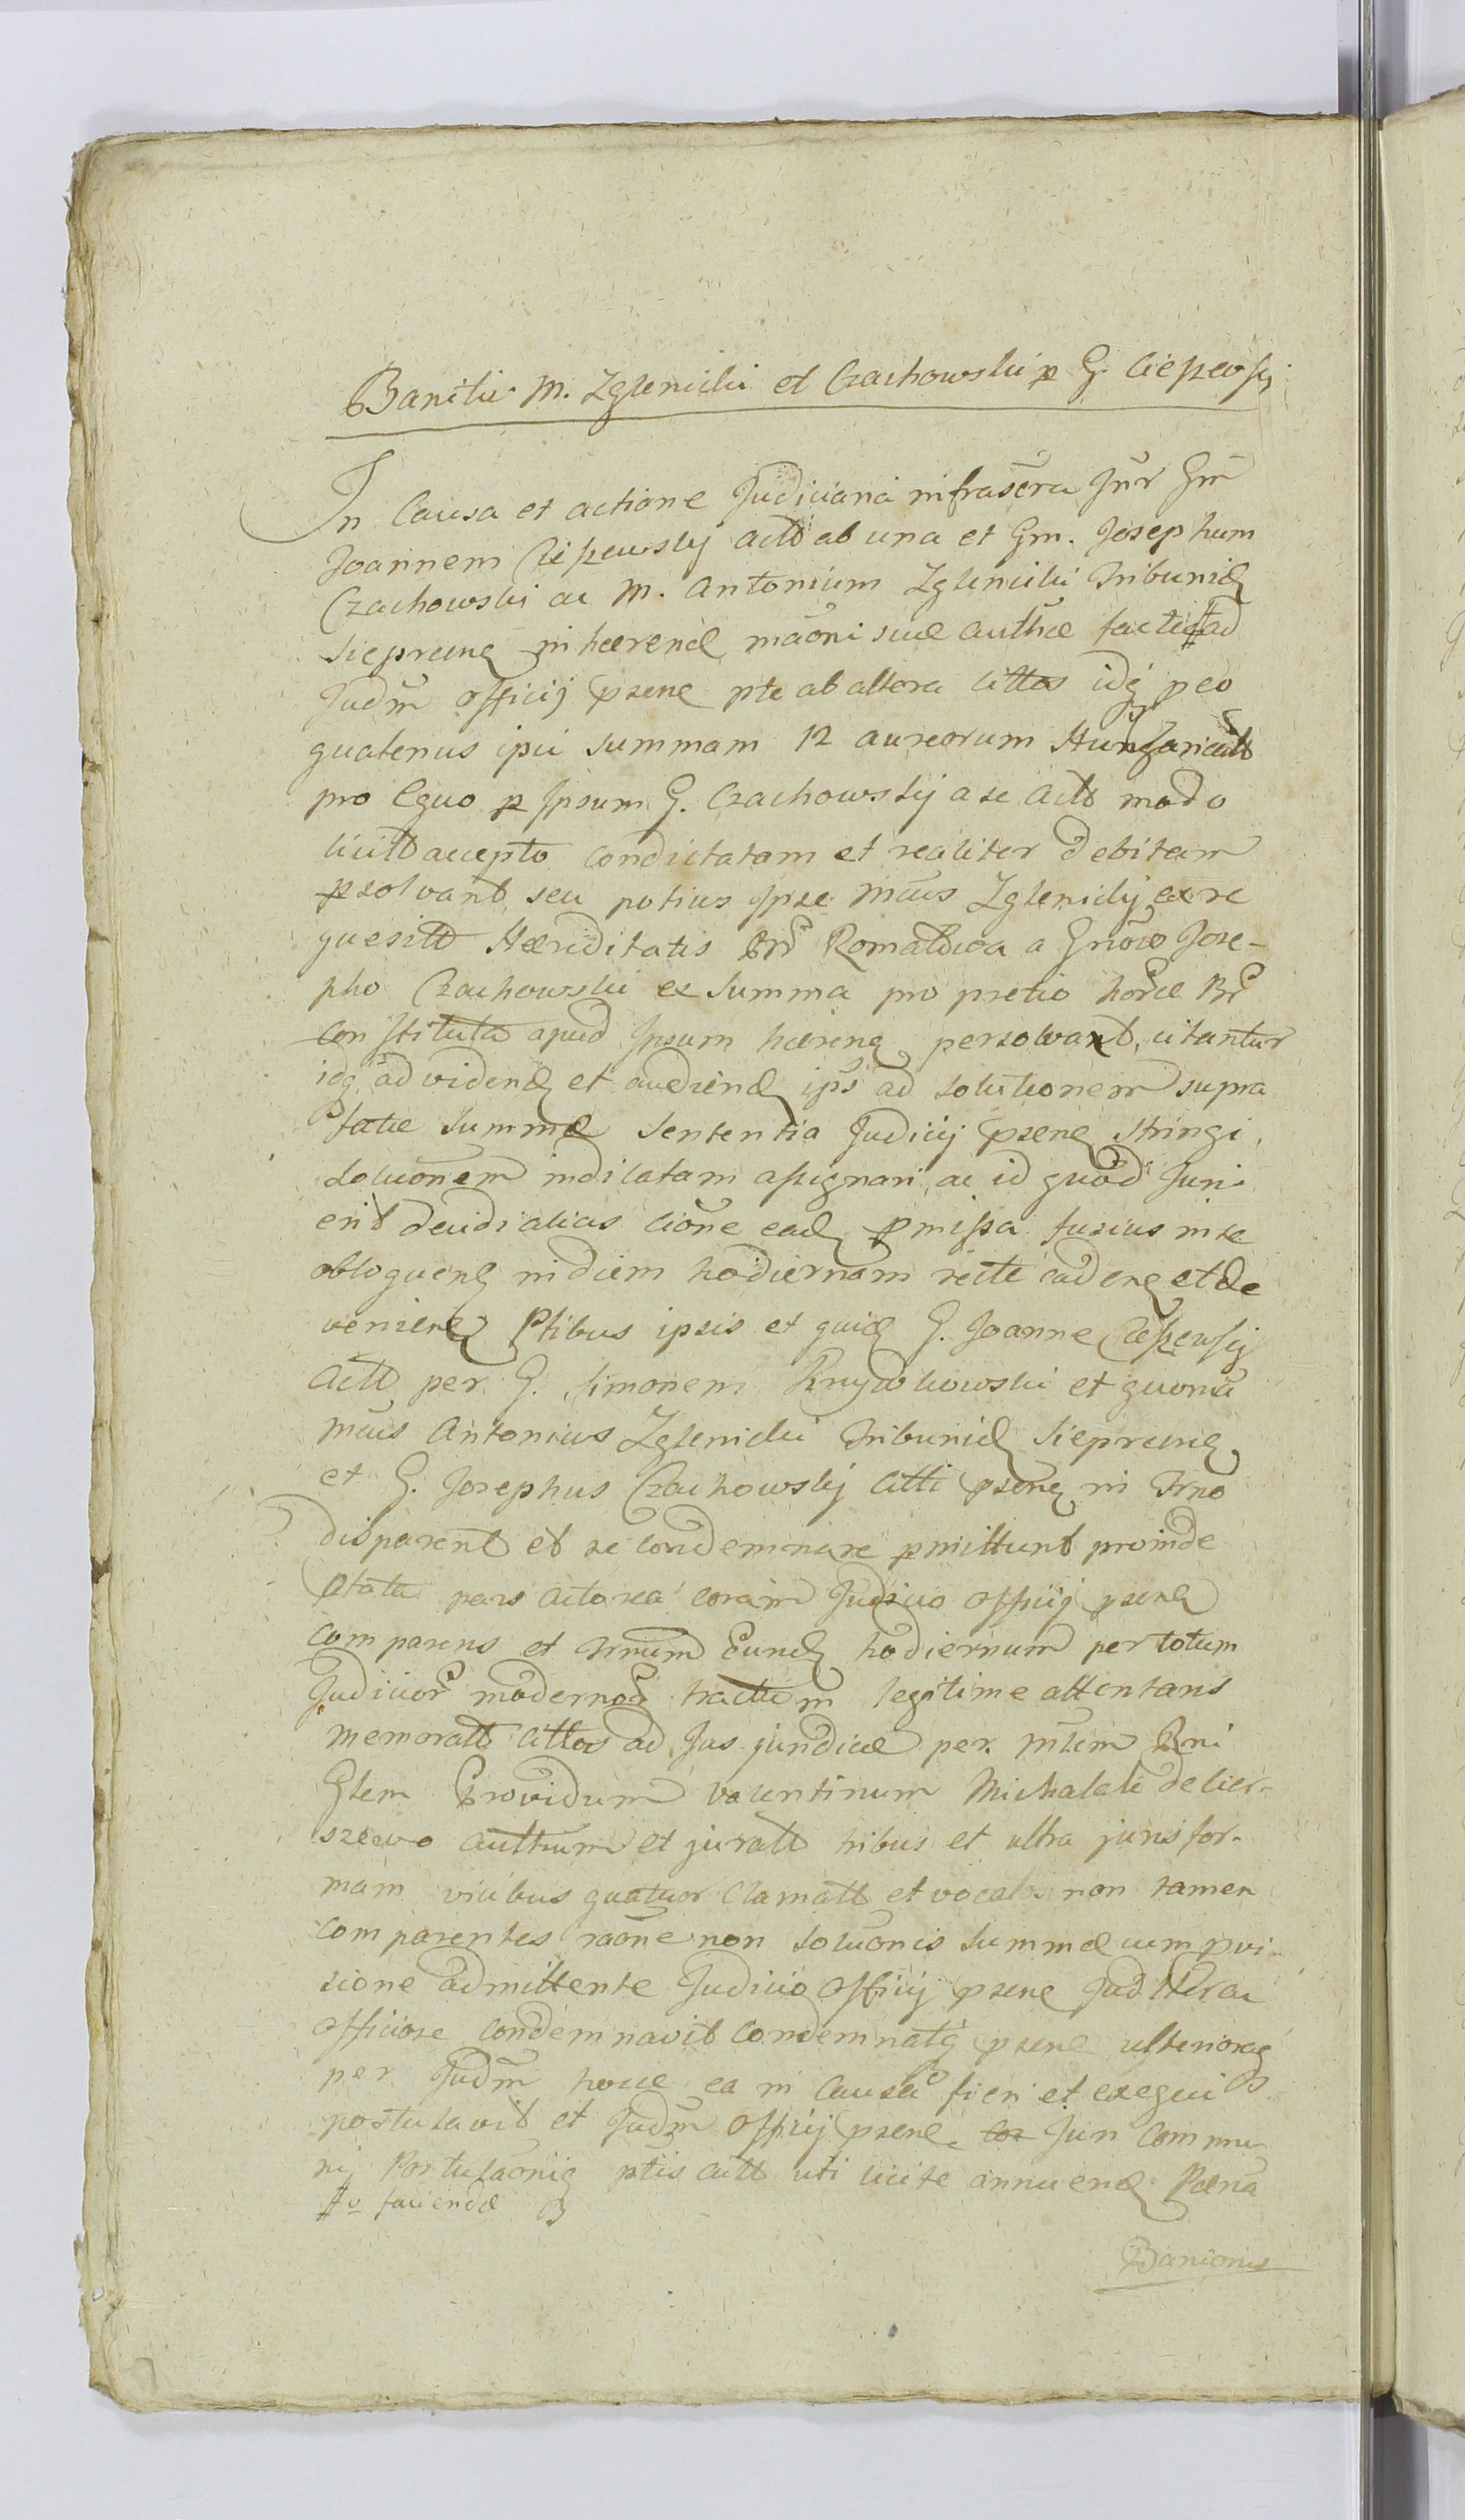 Banitio M. Zglenicki et Czachowski p G. Ciepewsij
In Causa et actione Judiciaria infrascra Jnr Gm
Joannem Ciepewskij act ab una et Gm. Josephum
Czachowski ac M. Antonium Zglenicki Tribunid
Sieprcens inhaerend maoni suae authae factae # ad
Judm Officij psens pte ab altera cittos idq peo
quatenus ipsi summam 12 aureorum Hungaricalt
pro Equo p Ipsum G. Czachowskij a se Act modo
licito accepto condictatam et realiter debitam
psolvant seu potius Ipse Mcus Zglenicky ex re
quesitt Haereditatis Br Romatowa a Gnoso Jose-
pho Czachowski ex Summa pro pretio horce Br
constituta apud Ipsum haerens persolvant, citantur
idq ad vidend et audiend ips ad solutionem supra
fatae Summae Sententia Judicij psens stringi,
Soluonem indilatam assignari, ac id quod Juri
erit decidi alias cione ead pmissa fusius in se
obloquens in diem hodiernam recte cadens et de
veniens Ptibus ipsis et quid G. Joanne Ciepewsij
Act per G. Simonem Krzywkowski et quonia
Mcus Antonius Zglenicki Tribunid Sieprcens
et G. Josephus Czachowskij citti psens in Trno
disparent et se condemnare pmittunt proinde
ptata pars actorea coram Judicio Officij psens
comparens et Trnum Eund hodiernum per totum
Judicior modernor tractum legitime attentans
memoratt cittos ad Jus juridice per Mlem Rni
Glem Providum Valentinum Michalak de Cier-
szewo authum et juratt tribus et ultra juris for-
mam vicibus quatuor clamatt et vocatos non tamen
comparentes raone non soluonis summae cum pvi-
sione admittente Judicio Officij psens Jud
officiose condemnavit condemnatq psens ulteriorq
per Judm hocce ea in causa fieri et exequi
postulavit et Judm Officij psens Juri commu-
ni Postulaonis ptis act uti licite annuend Paena
#o faciendae
Banionis